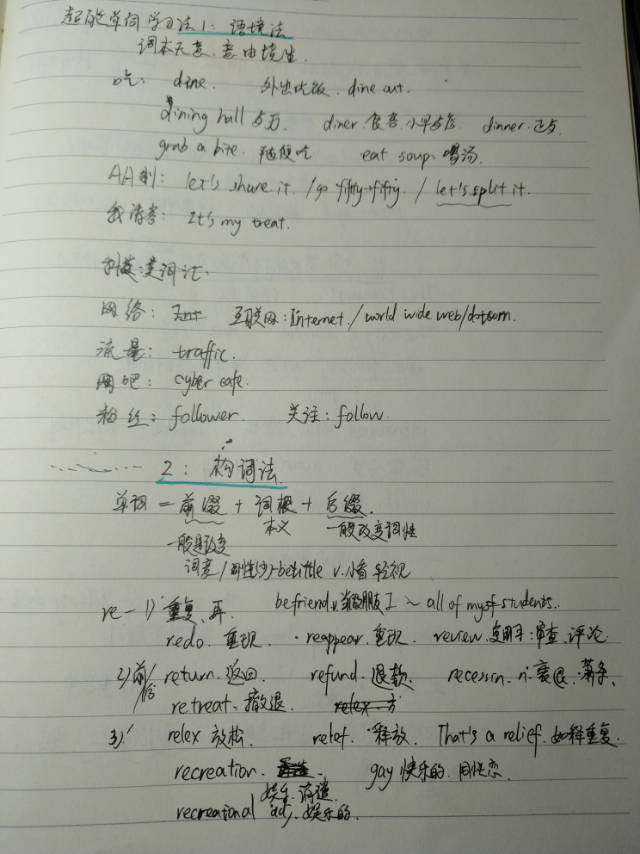 超能单词学习法1：语境法
词本无意，意由境生
吃： dine. 外出吃饭. dine out.
dining hall 食万. diner. 食客. 小早食店. dinner. 正式
grab a bite. 随便吃 eat soup. 喝汤.
AA制： let's share it. /go fifty-fifty. / let's split it.
我请客： It's my treat.
科技类词汇.
网络： 互联网：internet / world wide web/dotcom.
流量： traffic.
网吧： cyber cafe.
粉丝： follower. 关注：follow.
2： 构词法
单词 = 前缀 + 词根 + 后缀.
一般是改变 本义 一般改变词性
词意/词性(少)-belittle v.小看 轻视
re- 1) 重复、再. befriend. v. I ~ all of my students.
redo. 重现. reappear. 重现. review. 复习 : 审查. 评论
2) return. 返回. refund. 退款. recession. n. 衰退. 萧条.
retreat. 撤退.
3) relex 放松. relief. 释放. That's a relief. 如释重复.
recreation. gay 快乐的. 同性恋.
娱乐. 消遣
recreational adj. 娱乐的.